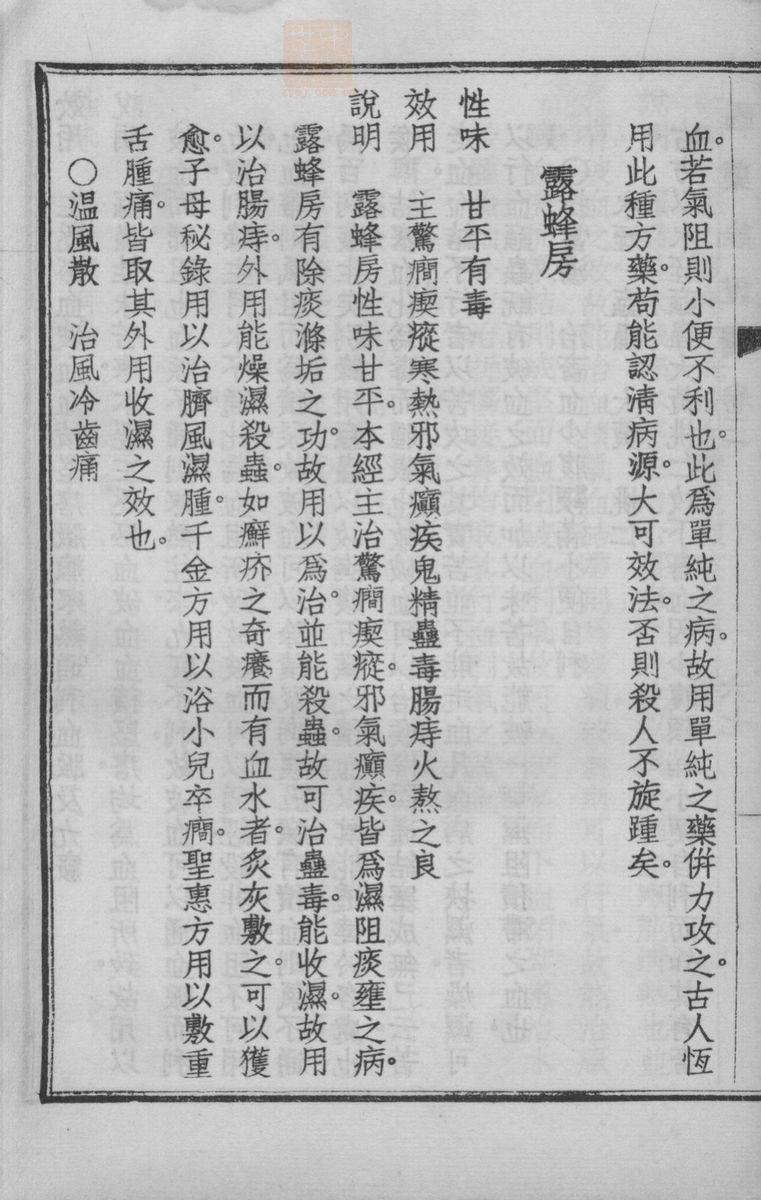 血。若氣阻則小便不利也。此爲單純之病。故用單純之藥併力攻之。古人恆
用此種方藥。苟能認清病源。大可效法。否則殺人不旋踵矣。
露蜂房
性味　甘平有毒
效用　主驚癎瘈瘲寒熱邪氣癲疾鬼精蠱毒腸痔火熬之良
說明　露蜂房性味甘平。本經主治驚癎瘈瘲。邪氣癲疾。皆爲濕阻痰壅之病。
露蜂房有除痰滌垢之功。故用以爲治。並能殺蟲。故可治蠱毒。能收濕。故用
以治腸痔。外用能燥濕殺蟲。如癬疥之奇癢而有血水者。炙灰敷之。可以獲
愈。子母秘錄用以治臍風濕腫。千金方用以浴小兒卒癎。聖惠方用以敷重
舌腫痛。皆取其外用收濕之效也。
○温風散　治風冷齒痛